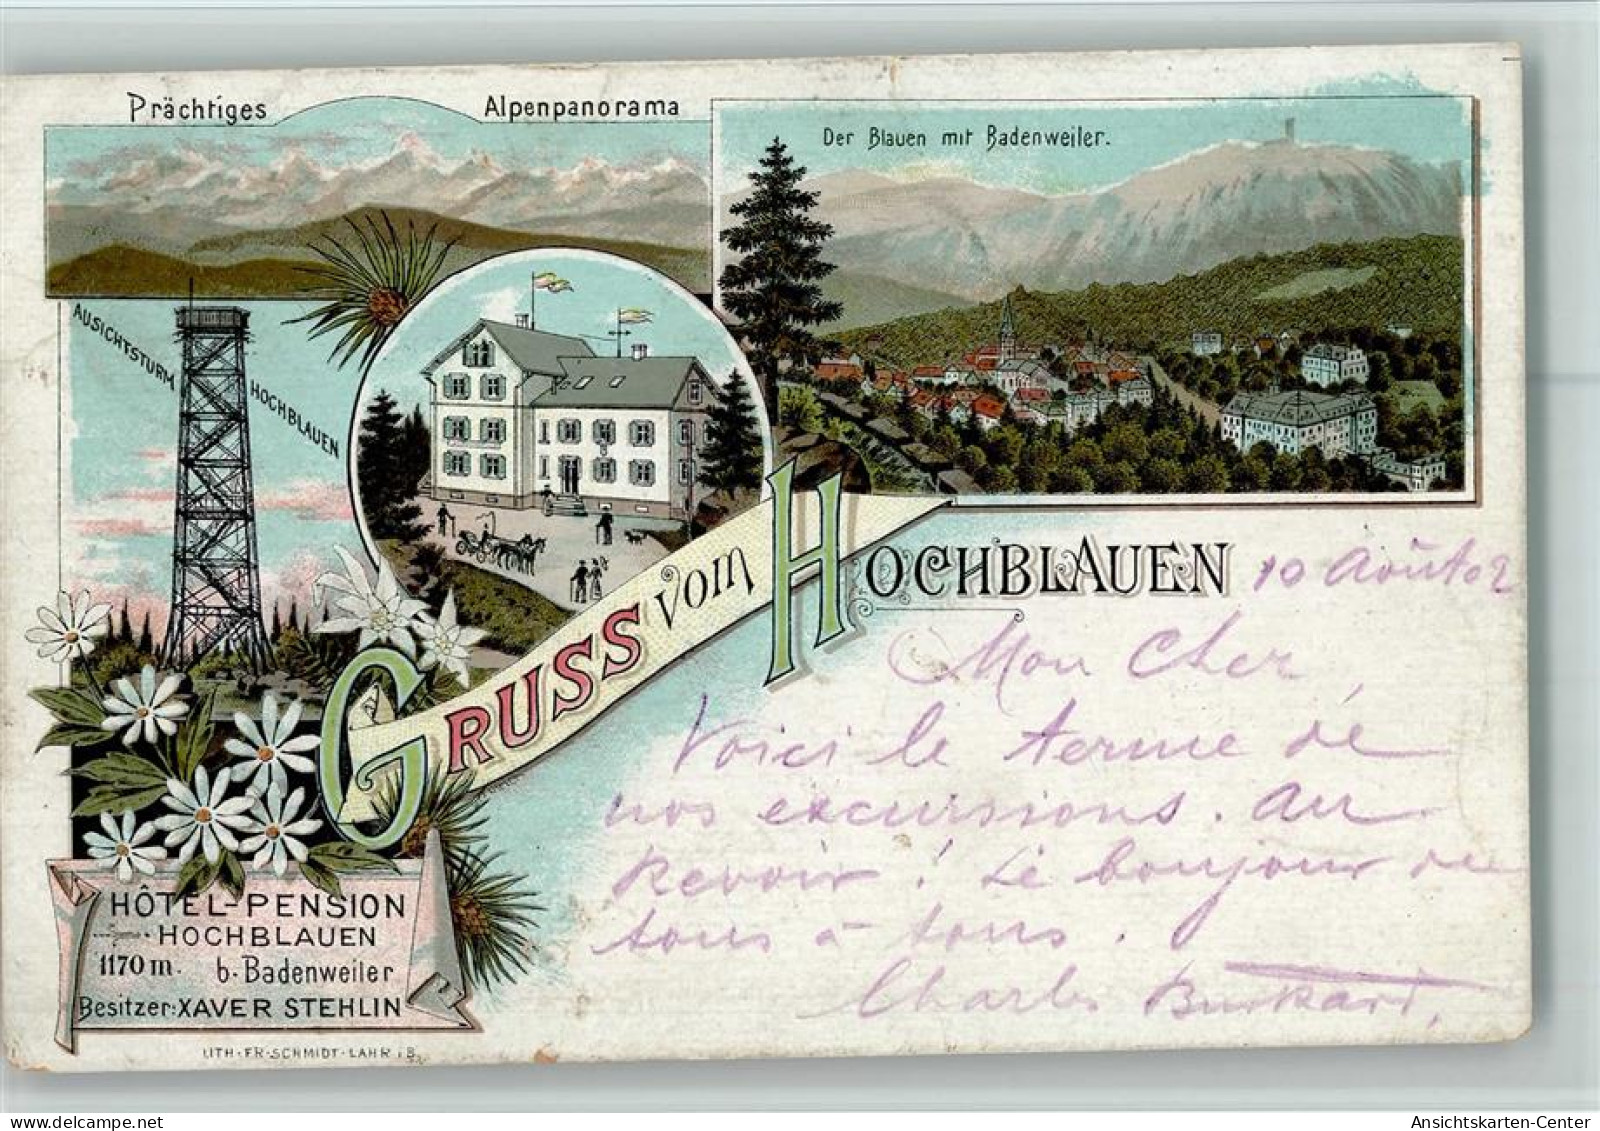 Prächtiges Alpenpanorama
Der Blauen mit Badenweiler.
AUSICHTSTURM
HOCHBLAUEN
GRUSS vom HOCHBLAUEN
10 Août 02
Mon Cher,
Voici le terme de
nos excursions. Au
Revoir! Le bonjour de
tous à tous.
Charles Burkard,
HÔTEL-PENSION
HOCHBLAUEN
1170 m. b. Badenweiler
Besitzer: XAVER STEHLIN
LITH. FR. SCHMIDT. LAHR i B.
Ansichtskarten-Center